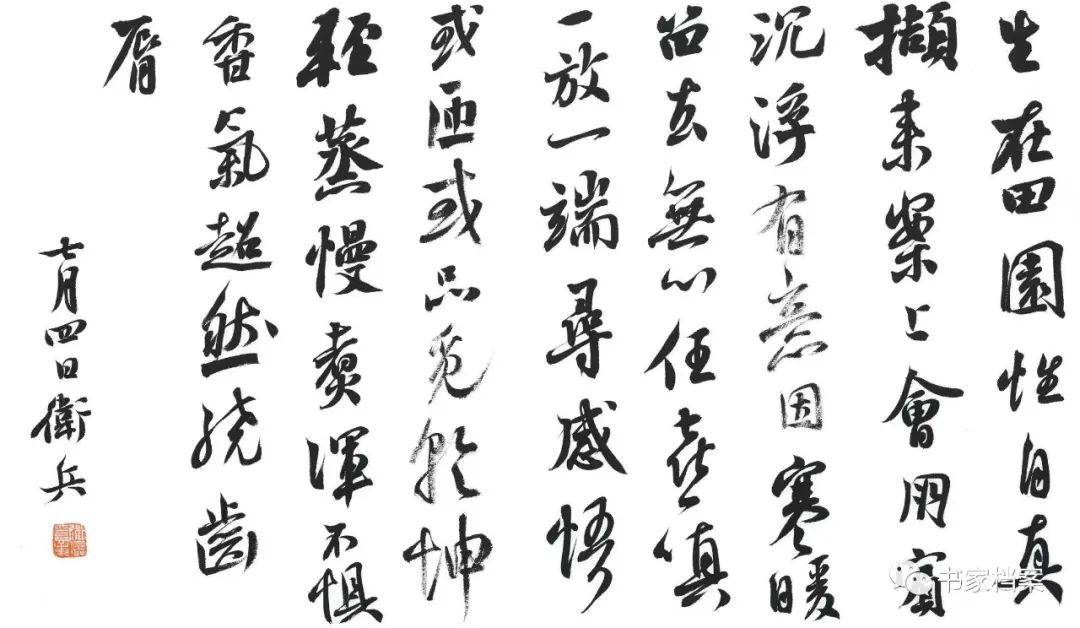 生在田園性自真
擷来案上會朋賓
沉浮有意因寒暖
留去無心任喜嗔
一放一端尋感悟
或匝或品覓乾坤
輕蒸慢煮渾不懼
香氣超然繞齒
脣
七月四日衛兵
书家档案